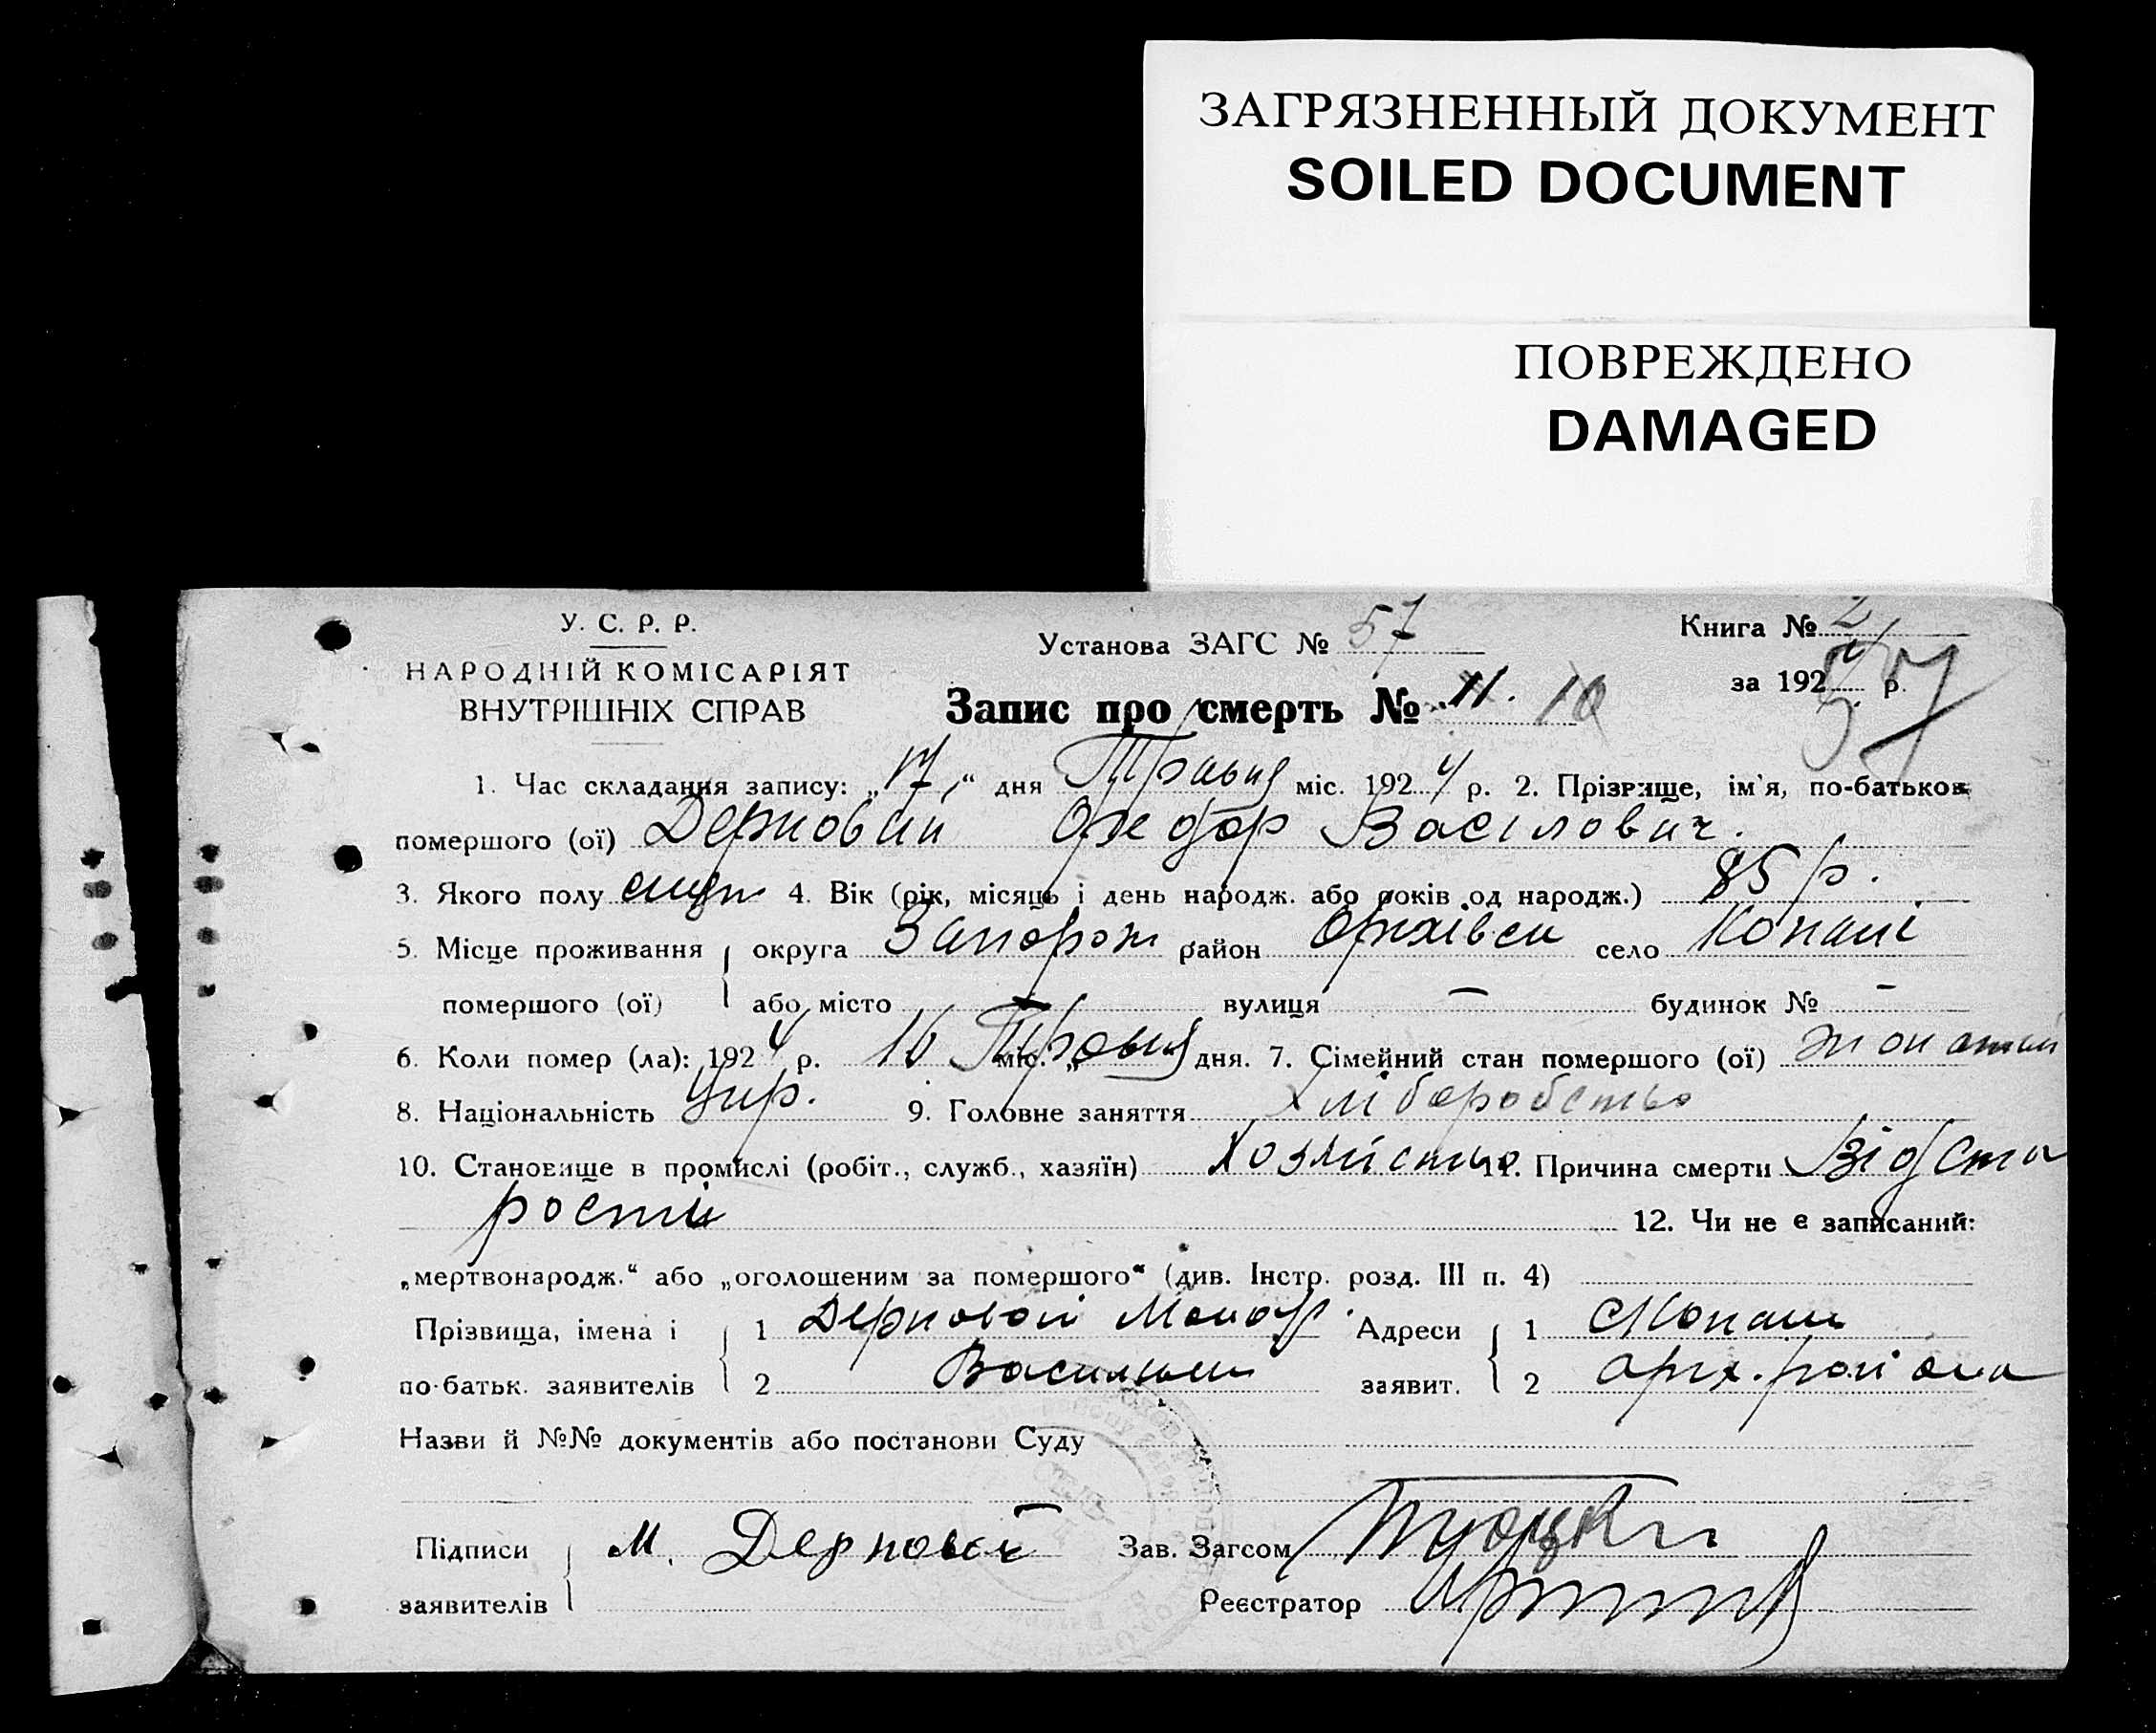 ЗАГРЯЗНЕННЫЙ ДОКУМЕНТ
SOILED DOCUMENT
ПОВРЕЖДЕНО
DAMAGED
У. С. Р. Р.
НАРОДНІЙ КОМІСАРІЯТ
ВНУТРІШНІХ СПРАВ
Установа ЗАГС № 57
Книга № 2
за 192 р.
57
Запис про смерть № 11. 10
1. Час складання запису: „17“ дня Травня міс. 1924 р. 2. Прізвище, ім'я, по-батьков
помершого (ої) Дерновий Федор Васілович.
3. Якого полу 4. Вік (рік, місяць і день народж. або років од народж.) 85 р.
5. Місце проживання округа Запорож район Оріхівськ село Копані
помершого (ої) або місто — вулиця — будинок № -
6. Коли помер (ла): 1924 р. 16 Травня міс. „ дня. 7. Сімейний стан помершого (ої) жонатий
8. Національність Укр. 9. Головне заняття Хліборобство
10. Становище в промислі (робіт., служб., хазяїн) 11. Причина смерти Від ста
рости 12. Чи не є записаний:
„мертвонародж.“ або „оголошеним за помершого“ (див. Інстр. розд. III п. 4)
Прізвища, імена і 1 Дерновой Адреси 1 Копани
по-батьк. заявителів 2 заявит. 2 Орех. района
Назви й №№ документів або постанови Суду
Підписи М. Дерновой Зав. Загсом
заявителів Реєстратор